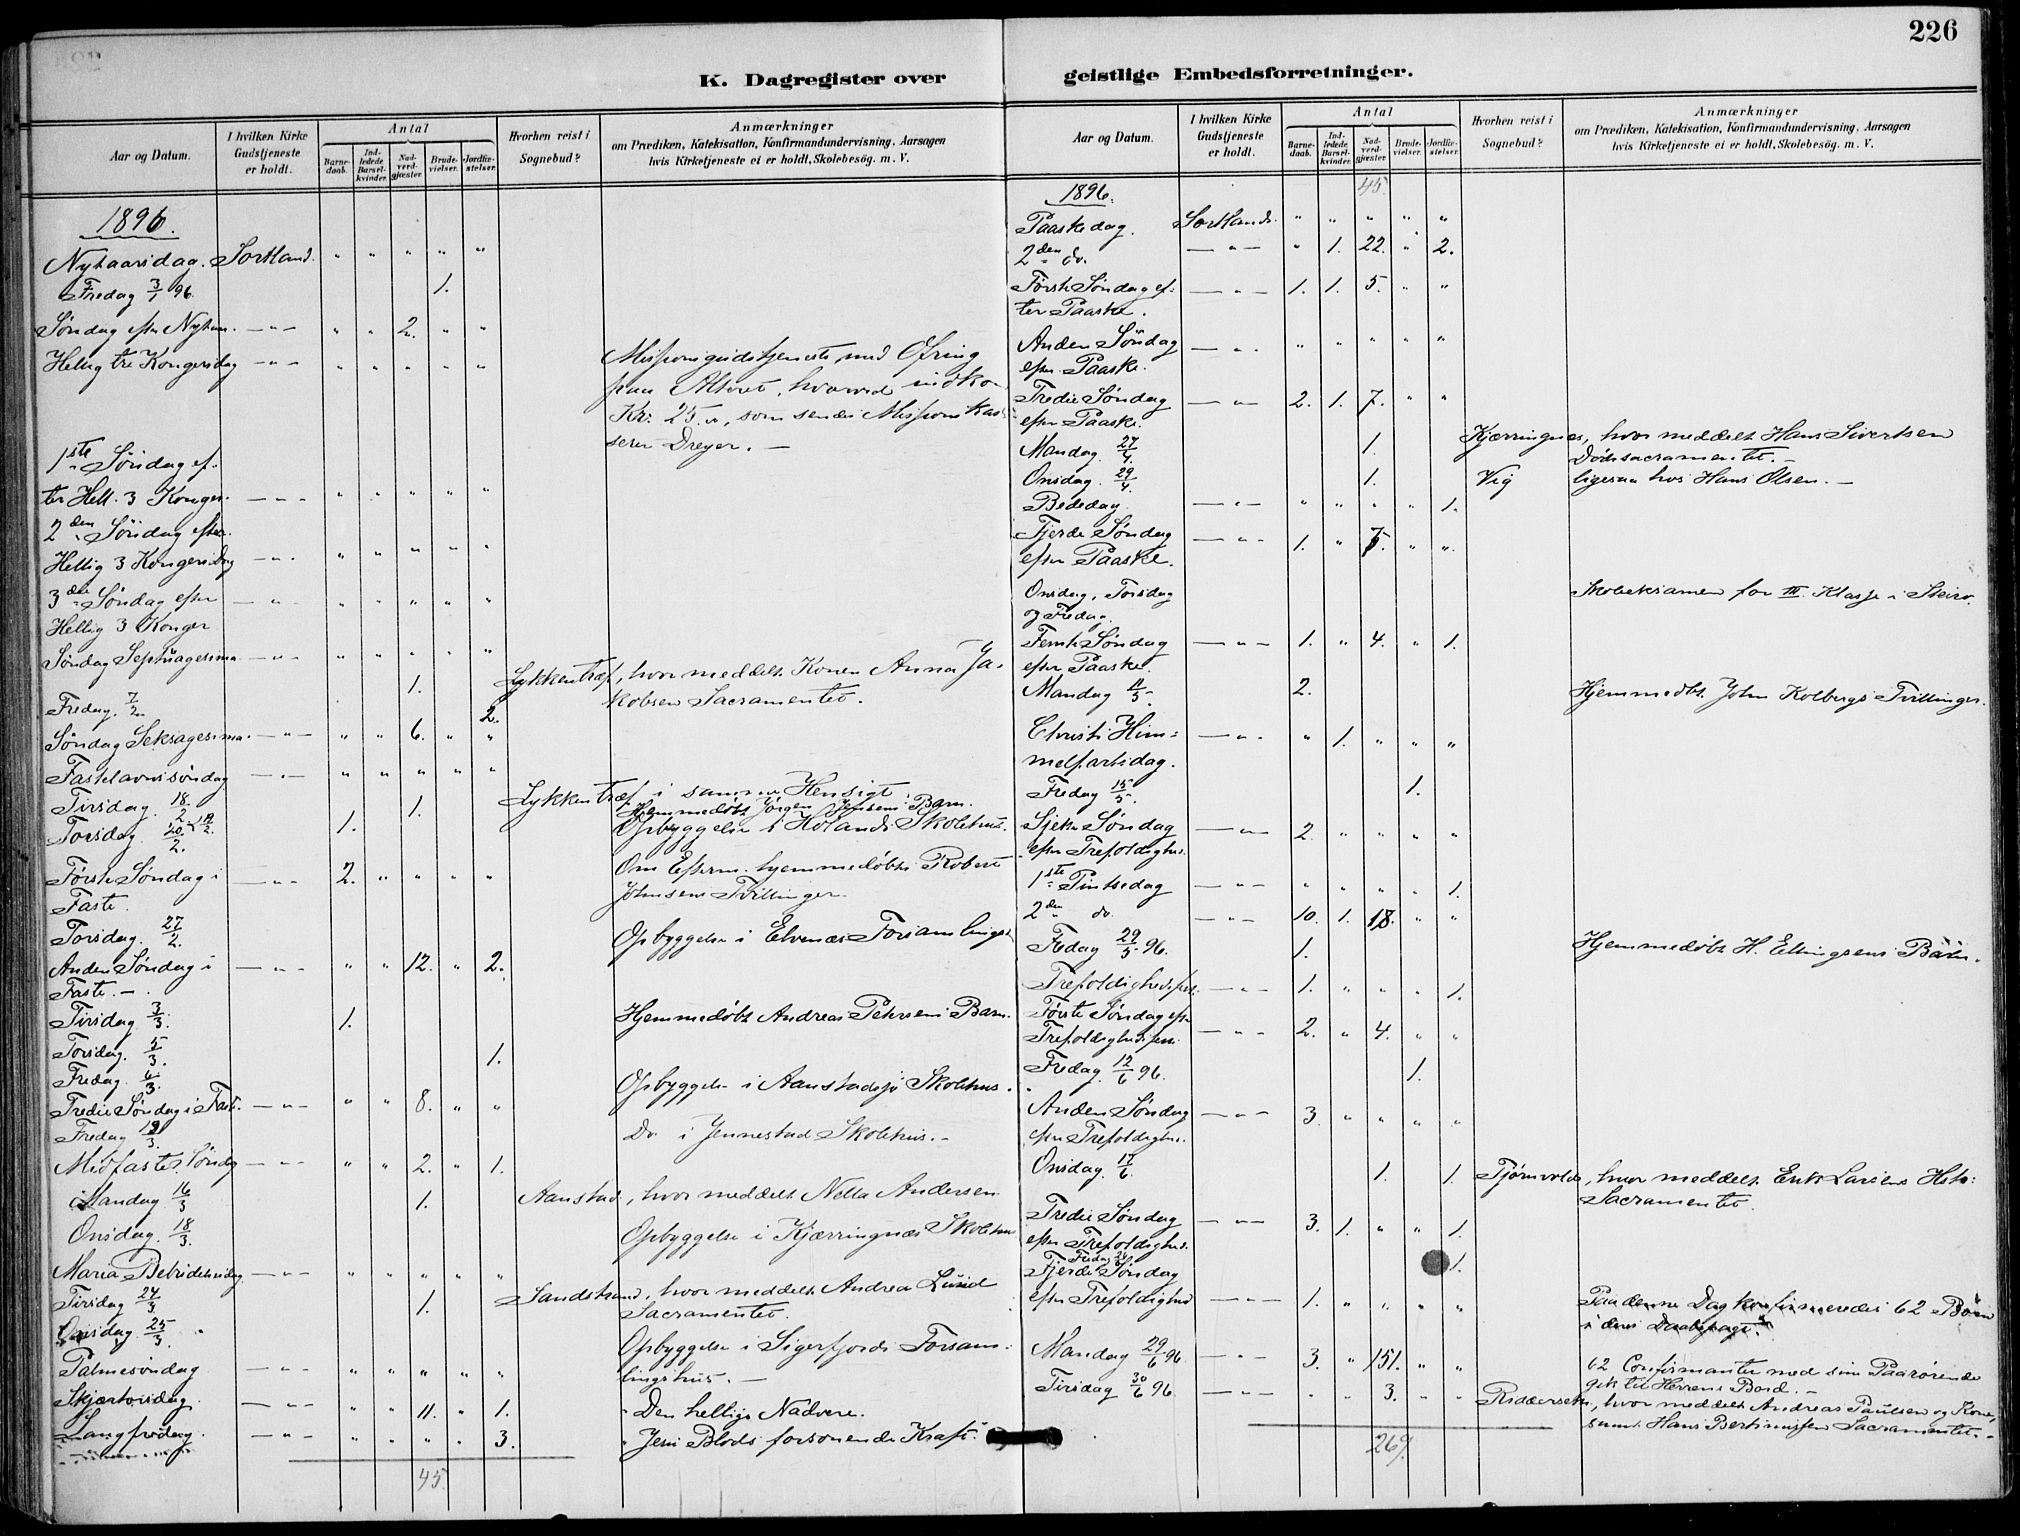 226
K. Dagregister over geistlige Embedsforretninger.
Aar og Datum.
I hvilken Kirke Gudstjeneste er holdt.
Antal
Barne-daab.
Ind-ledede Barsel-kvinder.
Nad-verd-gjæster
Brude-vielser.
Jordfæ-stelser.
Hvorhen reist i Sognebud?
Anmærkninger
om Prædiken, Katekisation, Konfirmandundervisning, Aarsagen
hvis Kirketjeneste ei er holdt, Skolebesög. m. V.
1896.
Nytaarsdag. Sortland. " " " " "
Fredag 3/1 96. 1.
Søndag efter Nytaar. —"— " " 2. " "
Hellig tre Kongersdag —"— " " " " " Missionsgudstjeneste med Ofring
paa Alteret, hvorved indkom
Kr. 25.", som sendes Missionskas-
serer Dreyer. —
1ste Søndag ef-
ter Hell. 3 Konger. —"— " " " " "
2den Søndag efter
Hellig 3 Kongersdag —"— " " " " "
3die Søndag efter —"— " " " " "
Hellig 3 Konger
Søndag Septuagesima —"— " " " " "
Fredag. 7/2. 1. Lykkentræf, hvor meddelt Konen Anna Ja-
kobsen Sacramentet.
2.
Søndag Seksagesima. —"— " " 6. " "
Fastelavnssøndag —"— " " " " "
Tirsdag. 18/2 1. Lykkentræf i samme Hensigt
19/2. 1. Hjemmedøbt Jørgen Jensens Barn.
Torsdag. 20/2. Opbyggelse i Holands Skolehus.
Første Søndag i —"— 2. " " " " Om Efterm. hjemmedøbt Robert
Faste. Johnsens Tvillinger.
Torsdag. 27/2. Opbyggelse i Elvenæs Forsamlings
Anden Søndag i —"— " " 12. " 2.
Faste. —
Tirsdag 3/3. 1. Hjemmedøbt Andreas Petersens Barn.
Torsdag. 5/3. 1.
Fredag. 6/3. Opbyggelse i Aanstadsjø Skolehus.
Tredie Søndag i Fast. —"— " " 8. " "
Fredag 13/3. Do i Jennestad Skolehus. —
Midfaste Søndag —"— " " 2. " 1.
Mandag 16/3 1. Aanstad, hvor meddelt Nella Andersen
Onsdag. 18/3. Opbyggelse i Kjærringnæs Skolehus
Maria Bebudelsesdag —"— " " " " "
Tirsdag 24/3 1. Sandstrand, hvor meddelt Andrea Lund
Sacramentet.
Onsdag. 25/3 Opbyggelse i Sigerfjords Forsam-
Palmesøndag —"— " " " " " lingshus. —
Skjærtorsdag. —"— " " 11. " 1. Den hellige Nadvere.
Langfredag. —"— " " " " 3. Jesu Blods forsonende Kraft.
45.
Aar og Datum.
I hvilken Kirke Gudstjeneste er holdt.
Antal
Barne-daab.
Ind-ledede Barsel-kvinder.
Nad-verd-gjæster
Brude-vielser.
Jordfæ-stelser.
Hvorhen reist i Sognebud?
Anmærkninger
om Prædiken, Katekisation, Konfirmandundervisning, Aarsagen
hvis Kirketjeneste ei er holdt, Skolebesög. m. V.
1896. 45.
Paaskedag. Sortlands. " " " " "
2den do. —"— " 1. 22. " 2.
Første Søndag ef- —"— 1. 1. 5. " "
ter Paaske.
Anden Søndag —"— " " " " "
efter Paaske.
Tredie Søndag —"— 2. 1. 7. " "
efter Paaske.
Mandag. 27/4. 1. Kjærringnes, hvor meddelt Hans Sivertsen
Dødssacramentet. —
Onsdag. 29/4. 1. Vig ligesaa hos Hans Olsen. —
Bededag —"— " " " " 1.
Fjerde Søndag —"— 1. " 5. " "
efter Paaske.
Onsdag, Torsdag Skoleeksamen for III. Klasse i Steiro.
og Fredag.
Femte Søndag —"— 1. " 4. " 1.
efter Paaske.
Mandag 11/5. 2. Hjemmedøbt John Kolbergs Tvillinger.
Christi Him- —"— " 1. " " "
melfartsdag.
Fredag 15/5. 1.
Sjette Søndag —"— 2. " " " "
efter Trefoldighed.
1ste Pintsedag —"— " " " " 1.
2den do. —"— 10. 1. 18. " "
Fredag 29/5 96. 1. Hjemmedøbt H. Ellingsens Barn.
Trefoldighedsfest. —"— 1. " " " 1.
Første Søndag efter —"— 2. " 4. " "
Trefoldighedsfest.
Fredag 12/6 96. 1.
Anden Søndag —"— 3. " " " "
efter Trefoldighed.
Onsdag. 17/6. 1. 1. Tjørnvolds, hvor meddelt Erik Larsens Hstr:
Sacramentet.
Tredie Søndag —"— 3. 1. " " 1.
efter Trefoldighed.
Fredag 26 1.
Fjerde Søndag
efter Trefoldighed —"— 1. " " " " Paa denne Dag konfirmeredes 62 Børn
i deres Daabspagt.
Mandag 29/6 96 —"— 3. " 151. " " 62 Confirmanter med sine Paarørende
gik til Herrens Bord. —
Tirsdag 30/6 96. —"— " " 3. " " Riddersete, hvor meddelt Andreas Paulsen og Kone,
samt Hans Bertinussen Sacramentet. —
269.